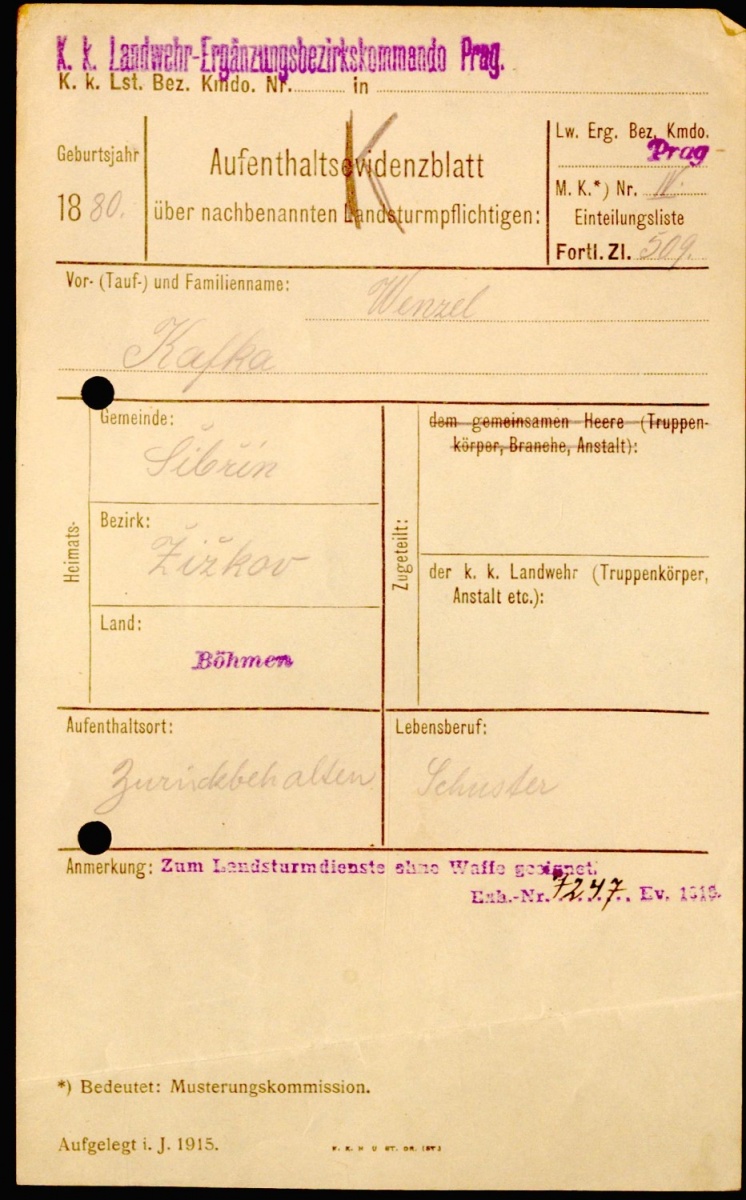 K. k. Landwehr-Ergänzungsbezirkskommando Prag.
K. k. Lst. Bez. Kmdo. Nr. in
Geburtsjahr
1880.
K
Aufenthaltsevidenzblatt
über nachbenannten Landsturmpflichtigen:
Lw. Erg. Bez. Kmdo.
Prag
M. K.*) Nr. IV.
Einteilungsliste
Fortl. Zl. 509.
Vor- (Tauf-) und Familienname: Wenzel
Kafka
Heimats-
Gemeinde:
Šibřin
Bezirk:
Žižkov
Land:
Böhmen
Zugeteilt:
dem gemeinsamen Heere (Truppen-
körper, Branche, Anstalt):
der k. k. Landwehr (Truppenkörper,
Anstalt etc.):
Aufenthaltsort:
Zurückbehalten
Lebensberuf:
Schuster
Anmerkung: Zum Landsturmdienste ohne Waffe geeignet.
Exh.-Nr. 7247 Ev. 1916.
*) Bedeutet: Musterungskommission.
Aufgelegt i. J. 1915.